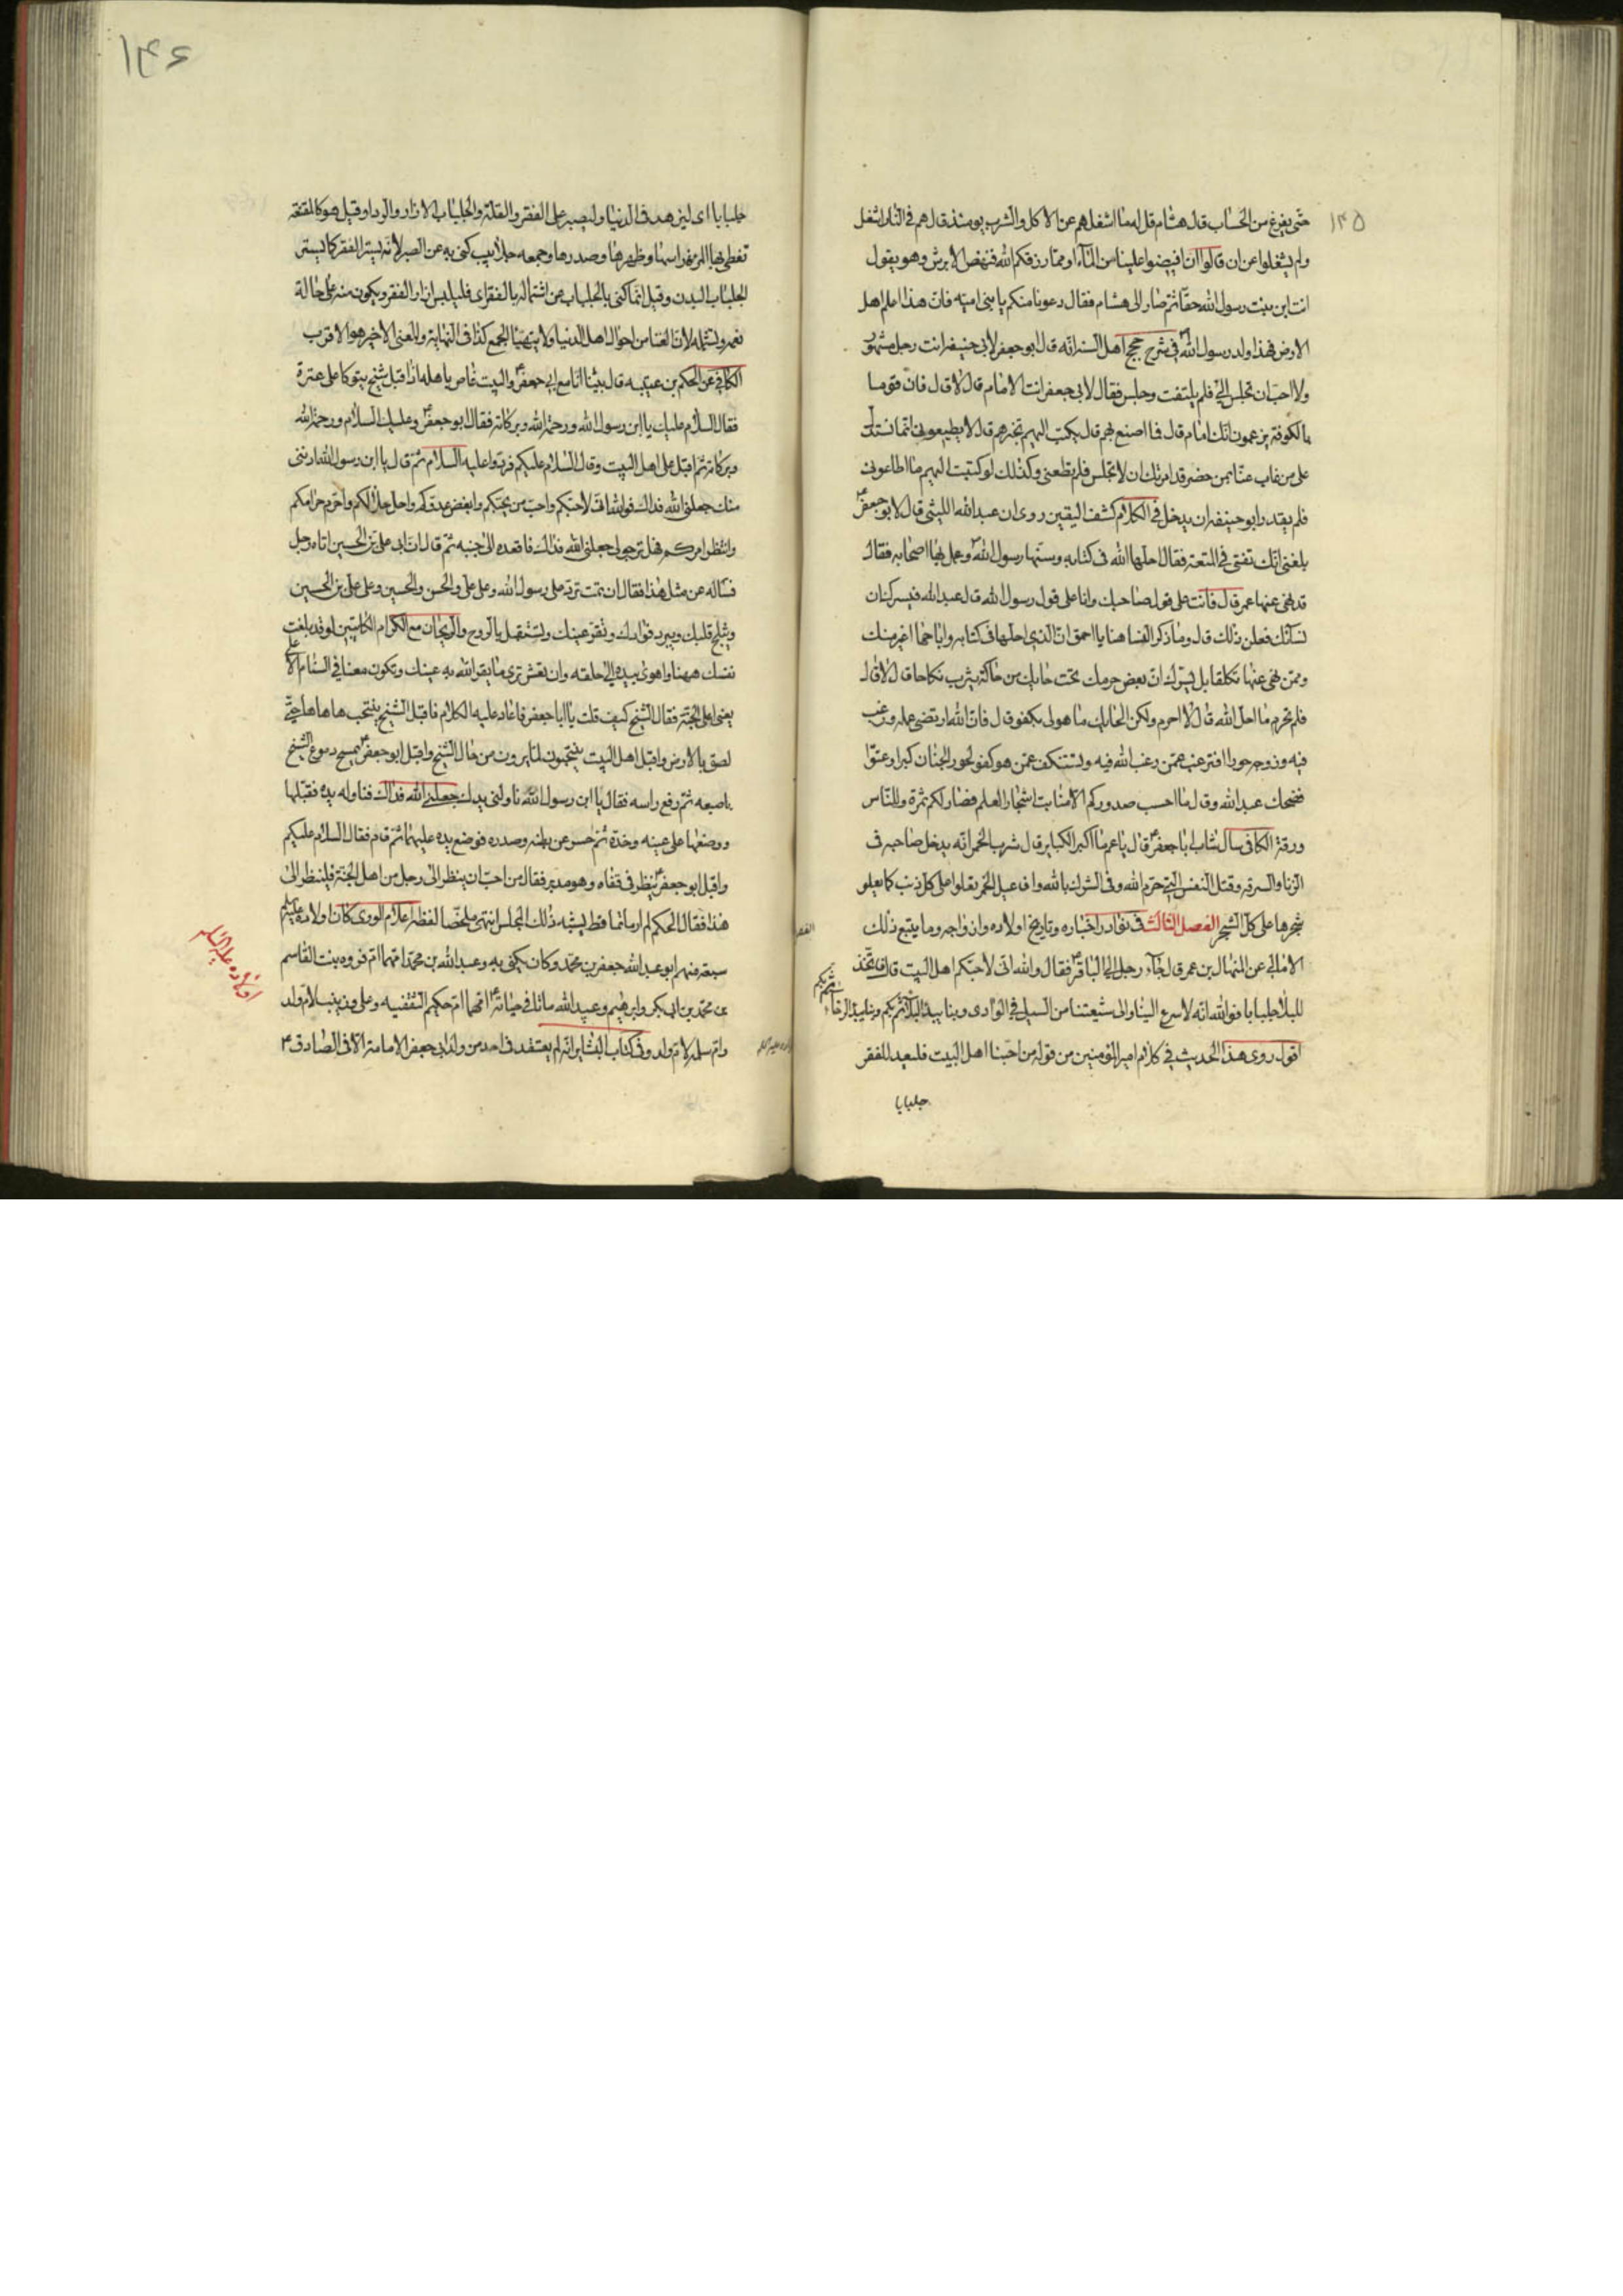 ١٤٥
حتّى يفرغ من الحساب قال هشام قل له ما اشغلهم عن الاكل والشرب يومئذ قال هم فى النار اشغل
ولم يشغلوا عن ان قالوا ان افيضوا علينا من الماء او ممّا رزقكم الله فنهض الابرش وهو يقول
انت ابن بنت رسول الله حقّا ثمّ صار الى هشام فقال دعونا منكم يا بنى اميّه فانّ هذا اعلم اهل
الارض فهذا ولد رسول الله فى شرح حجج اهل السنه انّه قال ابو جعفر لابى حنيفه انت رجل مشهور
ولا احبّ ان تجلس الىّ فلم يلتفت وجلس فقال لابى جعفر انت الامام قال لا قال فانّ قوما
بالكوفة يزعمون انّك امام قال فما اصنع لهم قال يكتب اليهم تخبرهم قال لا يطيعونى انّما نستدلّ
على من غاب عنّا بمن حضر قد امرتك ان لا تجلس فلم تطعنى وكذلك لو كتبت اليهم ما اطاعونى
فلم يقدر ابو حنيفه ان يدخل فى الكلام كشف اليقين روى ان عبد الله الليثى قال لابو جعفر
بلغنى انّك تفتى فى المتعة فقال احلّها الله فى كتابه وسنّها رسول الله وعمل بها اصحابه فقال
قد نهى عنها عمر قال فانت على قول صاحبك وانا على قول رسول الله قال عبد الله فيسرّك ان
نسآئك فعلن ذلك قال وما ذكر النسا هنا يا احمق انّ الذى احلّها فى كتابه واباحها اغير منك
وممّن نهى عنها تكلّفا بل يسرّك ان بعض حرمك تحت حايك من حاكة يثرب نكاحا قال لا قال
فلم تحرم ما احلّ الله قال لا احرم ولكن الحايك ما هو لى بكفو قال فانّ الله ارتضى عمله ورغب
فيه وزوجه حورا افترغب عمّن رغب الله فيه وتستنكف عمّن هو كفو لحور الجنان كبرا وعتوّا
فضحك عبد الله وقال ما احسب صدوركم الا منابت اشجار العلم فصار لكم ثمرة وللنّاس
ورقة الكافى سال شاب ابا جعفر قال يا عم ما اكبر الكباير قال شرب الخمر انّه يدخل صاحبه فى
الزنا والسرقه وقتل النفس التى حرّم الله وفى الشرك بالله وافاعيل الخمر تعلوا على كلّ ذنب كما يعلو
شجرها على كلّ الشجر الفصل الثالث فى نوادر اخباره وتاريخ اولاده وازواجه وما يتبع ذلك
الامالى عن المنهال بن عمر قال جآء رجل الى الباقر فقال والله انى لاحبّكم اهل البيت قال فاتّخذ
للبلا جلبابا فوالله انه لاسرع الينا والى شيعتنا من السيل فى الوادى وبنا يبدأ البلآء ثمّ بكم وبنا يبدأ الرخاء
ثمّ بكم
اقول روى هذا الحديث فى كلام امير المؤمنين من قوله من احبّنا اهل البيت فليعد للفقر
جلبابا
١٤٦
جلبابا اى ليزهد فى الدنيا وليصبر على الفقر والقلّة والجلباب الازار والردا وقيل هو كالمقنعة
تغطى بها المراة راسها وظهرها وصدرها وجمعه جلابيب كنى به عن الصبر لانّه يستر الفقر كما يستر
الجلباب البدن وقيل انّما كنى بالجلباب عن اشتماله بالفقر اى فليلبس ازار الفقر ويكون منه على حالة
تعمه وتشتمله لان الغنا من احوال اهل الدنيا ولا يتهيّا الجمع كذا فى النهاية والمعنى الاخير هو الاقرب
الكافى عن الحكم بن عتيبه قال بينا انا مع ابى جعفر والبيت غاصّ باهله اذ اقبل شيخ يتوكا على عنزة
فقال السلام عليك يا ابن رسول الله ورحمة الله وبركاته فقال ابو جعفر وعليك السلام ورحمة الله
وبركاته ثمّ اقبل على اهل البيت وقال السلام عليكم فردّوا عليه السلام ثمّ قال يا ابن رسول الله ادننى
منك جعلنى الله فداك فوالله انّى لاحبّكم واحبّ من يحبّكم وابغض عدوّكم واحلّ حلالكم واحرّم حرامكم
وانتظر امركم فهل ترجو لى جعلنى الله فداك فاقعده الى جنبه ثمّ قال انّ ابى على بن الحسين اتاه رجل
فساله عن مثل هذا فقال ان تمت ترد على رسول الله وعلى على والحسن والحسين وعلى على بن الحسين
ويثلج قلبك ويبرد فؤادك وتقرّ عينك وتستقبل بالروح والريحان مع الكرام الكاتبين لو قد بلغت
نفسك ههنا واهوى بيده الى حلقه وان تعش ترى ما يقرّ الله به عينك وتكون معنا فى السنام الاعلى
يعنى اعلى الجنّة فقال الشيخ كيف قلت يا ابا جعفر فاعاد عليه الكلام فاقبل الشيخ ينتحب ها ها ها حتّى
لصق بالارض واقبل اهل البيت ينتحبون لما يرون من حال الشيخ واقبل ابو جعفر يمسح دموع الشيخ
باصبعه ثمّ رفع راسه فقال يا ابن رسول الله ناولنى يدك جعلنى الله فداك فناوله يده فقبّلها
ووضعها على عينه وخدّه ثمّ حسر عن بطنه وصدره فوضع يده عليهما ثمّ قام فقال السلام عليكم
واقبل ابو جعفر ينظر فى قفاه وهو مدبر فقال من احبّ ان ينظر الى رجل من اهل الجنّة فلينظر الى
هذا فقال الحكم لم ار ماتما قط يشبه ذلك المجلس انتهى ملخّصا لفظه اعلام الورى كان اولاده
سبعة فمنهم ابو عبد الله جعفر بن محمّد وكان يكنّى به وعبد الله بن محمّد امّهما امّ فروه بنت القاسم
بن محمّد بن ابى بكر وابراهيم وعبيد الله ماتا فى حياته امّهما امّ حكيم الثقفيه وعلى وزينب لامّ ولد
وامّ سلمه لامّ ولد وفى كتاب البشاير انّه لم يعتقد فى احد من ولد ابى جعفر الامامة الا فى الصادق
اولاده عليه السلم